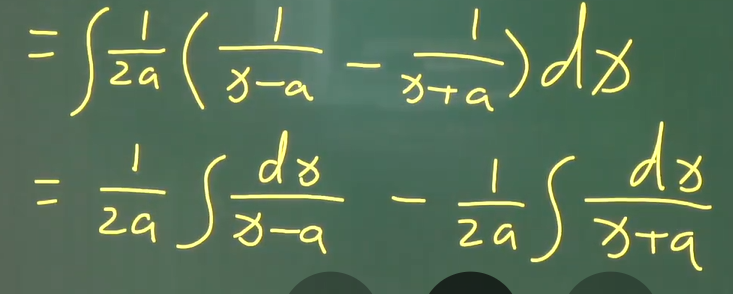 = ∫ 1/2a ( 1/x-a - 1/x+a ) dx
= 1/2a ∫ dx/x-a - 1/2a ∫ dx/x+a